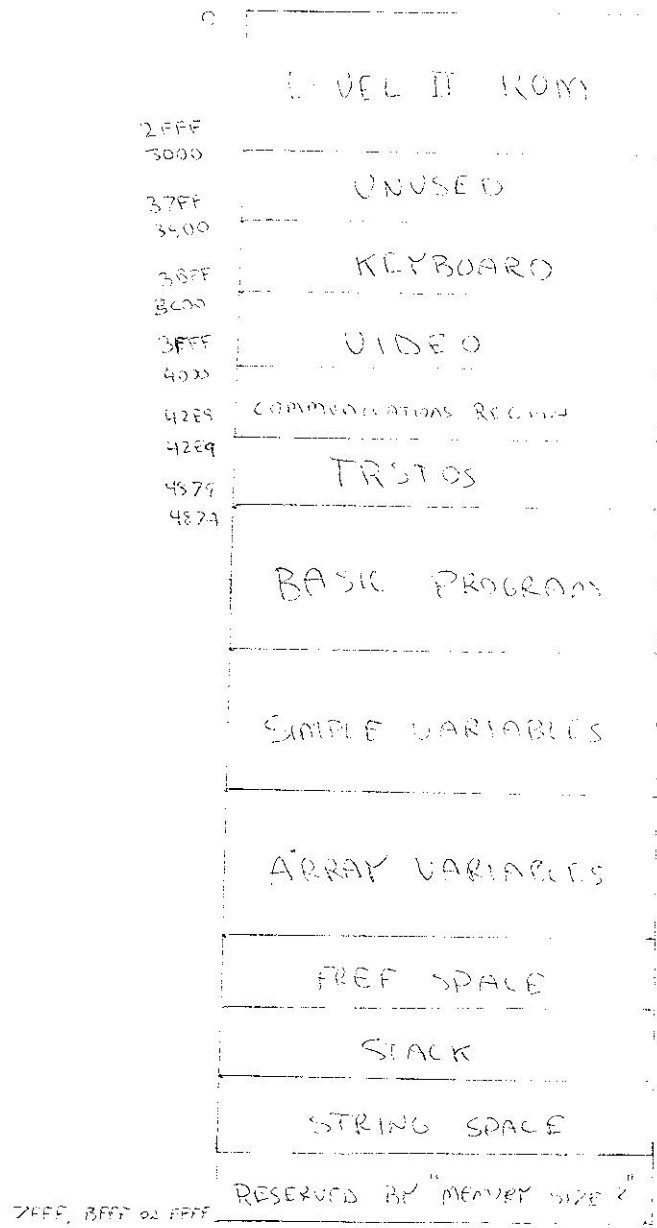 0
LEVEL II ROM
2FFF
3000
UNUSED
37FF
KEYBOARD
3BFF
3C00
VIDEO
3FFF
4000
COMMUNICATIONS REGION
42E9
TRSTOS
BASIC PROGRAM
SIMPLE VARIABLES
ARRAY VARIABLES
FREE SPACE
STACK
STRING SPACE
RESERVED BY "MEMORY SIZE?"
7FFF, BFFF OR FFFF